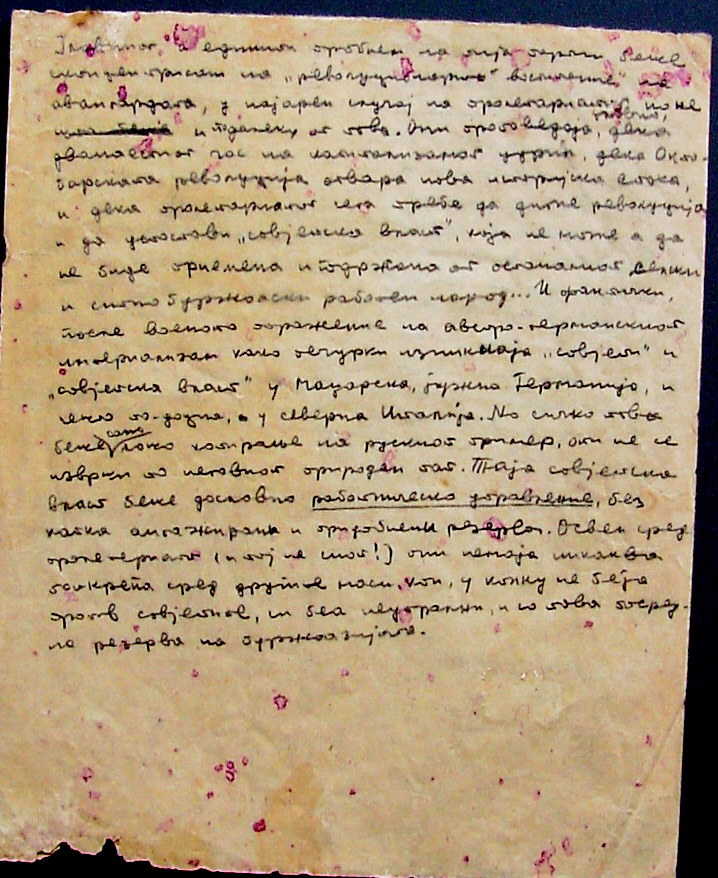 Главниот и единиот проблем на тија партии беше
концентрисан на „револуционарно" воспитание на
авангардата, у најарен случај на пролетариатот, но не
и подалеку от това. Они проповедаја, дека
дванаестиот час на капитализамот удрил, дека Окто-
барската револуција отвара нова историјска епока,
и дека пролетариатот сега требе да дигне револуција
и да успостави „совјетска власт", која не може а да
не биде приемена и подржана от останалиот селски
и ситно буржоаски работен народ... И фактички,
после военото поражение на австро-германскиот
империализам како печурки изникнаја „совјети" и
„совјетска власт" у Маџарска, јужна Германија, и
нешто по-доцна, у северна Италија. Но сичко това
беше само лошо копирање на рускиот пример, оти не се
изврши по неговиот природен пат. Таја совјетска
власт беше дословно работническо управление, без
каква ангажирани и придобиени резерви. Освен сред
пролетериат (и тој не сиот!) они немаја никаква
подкрепа сред другите маси, кои, у колку не беја
против совјетите, си беа неутрални, и со това посред-
на резерва на буржоазијата.